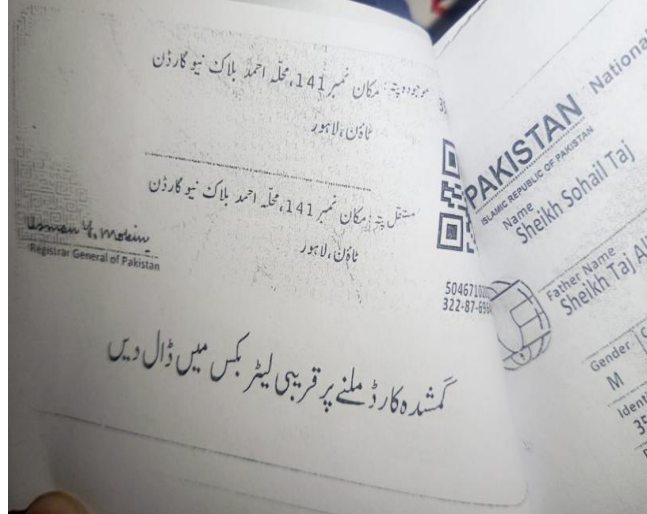 موجودہ پتہ: مکان نمبر 141، محلّہ احمد بلاک نیو گارڈن
ٹاؤن، لاہور
مستقل پتہ: مکان نمبر 141، محلّہ احمد بلاک نیو گارڈن
ٹاؤن، لاہور
Usman Y. Mobin
Registrar General of Pakistan
گمشدہ کارڈ ملنے پر قریبی لیٹر بکس میں ڈال دیں
PAKISTAN National
ISLAMIC REPUBLIC OF PAKISTAN
Name
Sheikh Sohail Taj
Father Name
Sheikh Taj
Gender
M